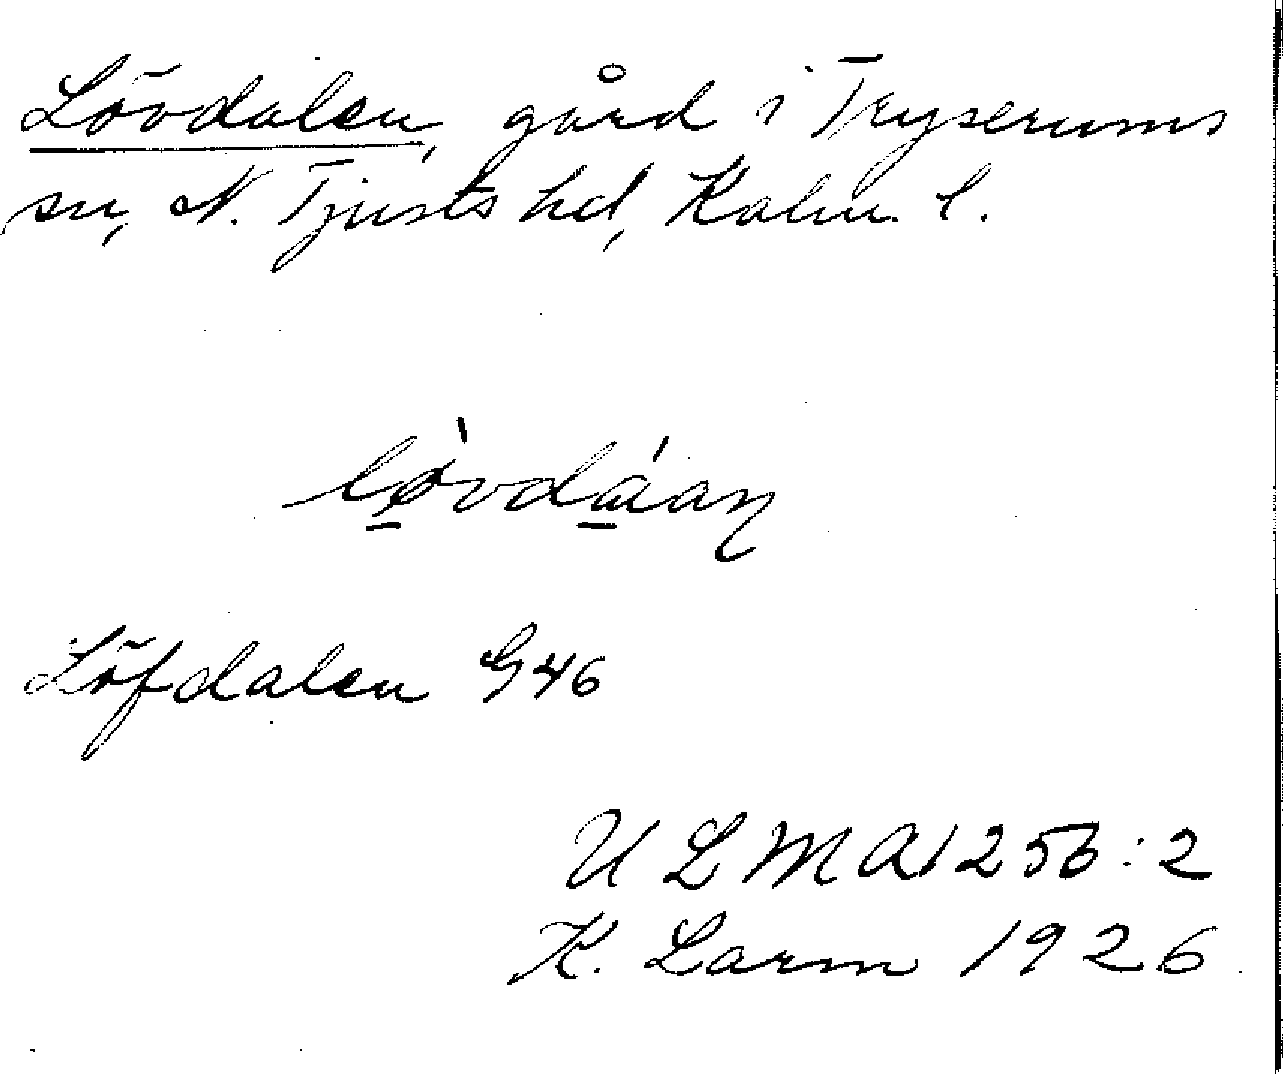 Lövdalen, gård i Tryserums
sn, N. Tjusts hd, Kalm. l.
lø̀vdáan
Löfdalen G46
ULMA 1256:2
K. Larm 1926.